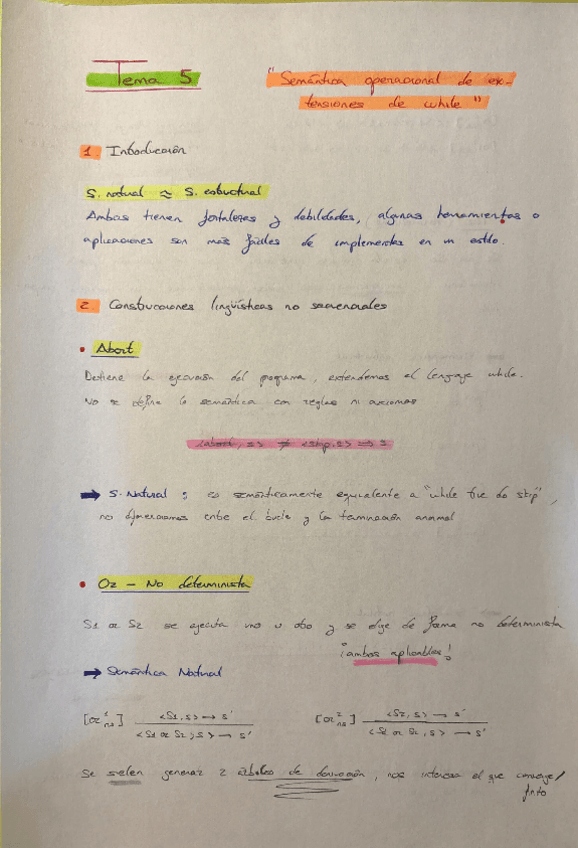 Tema 5
"Semántica operacional de ex-
tensiones de while"
1. Introducción
S. natural ≈ S. estructual
Ambas tienen fortalezas y debilidades, algunas herramientas o
aplicaciones son más fáciles de implementar en un estilo.
2. Construcciones lingüísticas no secuenciales
• Abort
Detiene la ejecución del programa, extendemos el lenguaje while.
No se define la semántica con reglas ni axiomas
<abort, s> ≠ <skip, s> → s
→ S. Natural: es semánticamente equivalente a "while true do skip",
no diferenciamos entre el bucle y la terminación anormal
• Or - No determinista
S1 or S2 se ejecuta uno u otro y se elige de forma no determinista
¡ambos aplicables!
→ Semántica Natural
[or¹ns] <S1, s> → s' [or²ns] <S2, s> → s'
<S1 or S2, s> → s' <S1 or S2, s> → s'
Se suelen generar 2 árboles de derivación, nos interesa el que converge/
finito